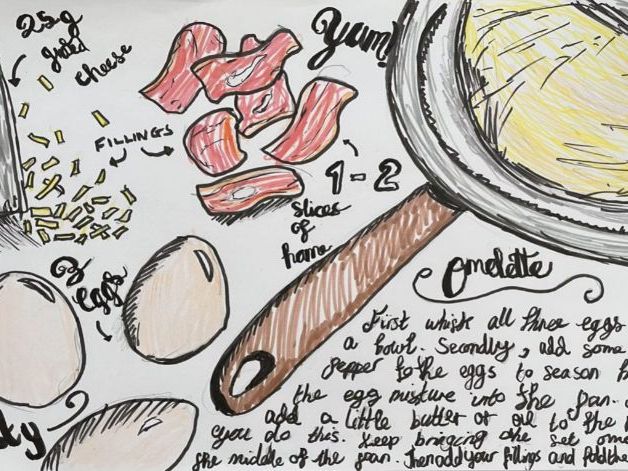 25g
grated
cheese
Yum!
FILLINGS
1-2
slices
of
hame
3
eggs
Omelette
First whisk all three eggs
a bowl. Secondly, add some
pepper to the eggs to season
the egg mixture into the pan.
add a little butter or oil to the
you do this. Keep bringing the set ome
the middle of the pan. Then add your fillings and fold the
ty